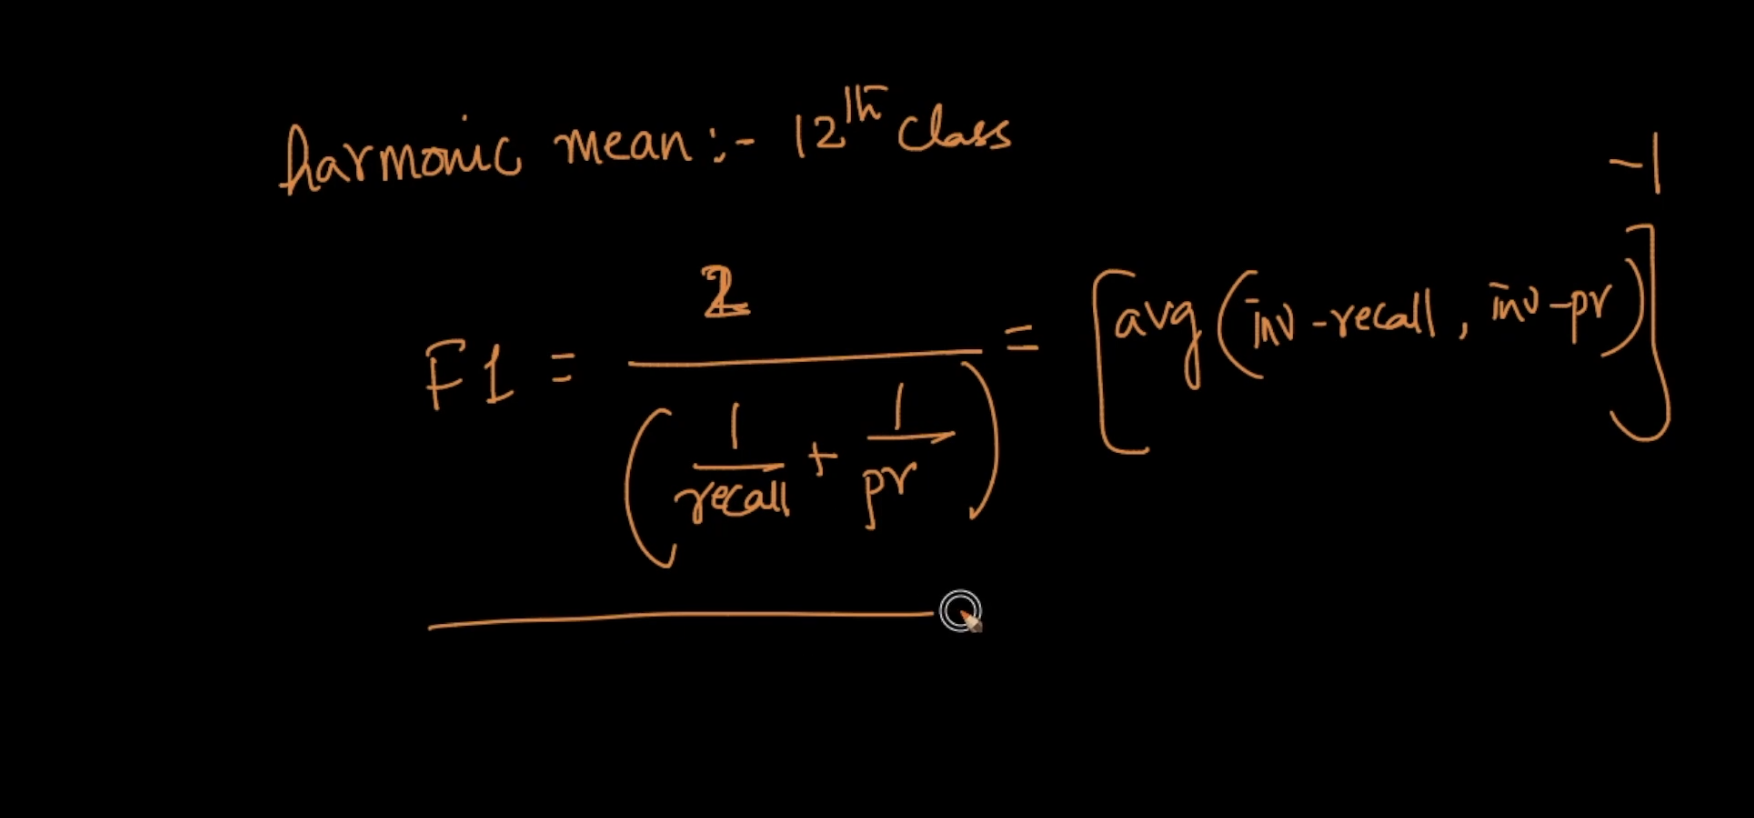 harmonic mean :- 12th class
F1 = 2 / (1/recall + 1/pr) = [avg(inv-recall, inv-pr)]^-1